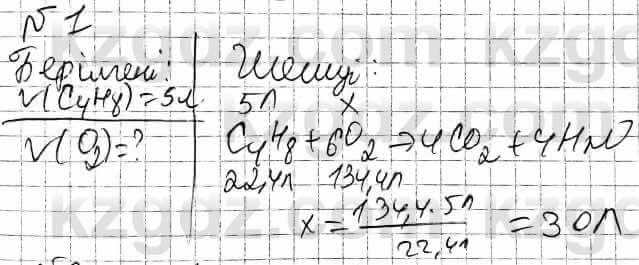 №1
Берілгені:
V(C₄H₈)=5л
V(O₂)=?
Шешуі:
5л x
C₄H₈+6O₂→4CO₂+4H₂O
22,4л 134,4л
x=134,4·5л/22,4л=30л
kzgdz.com